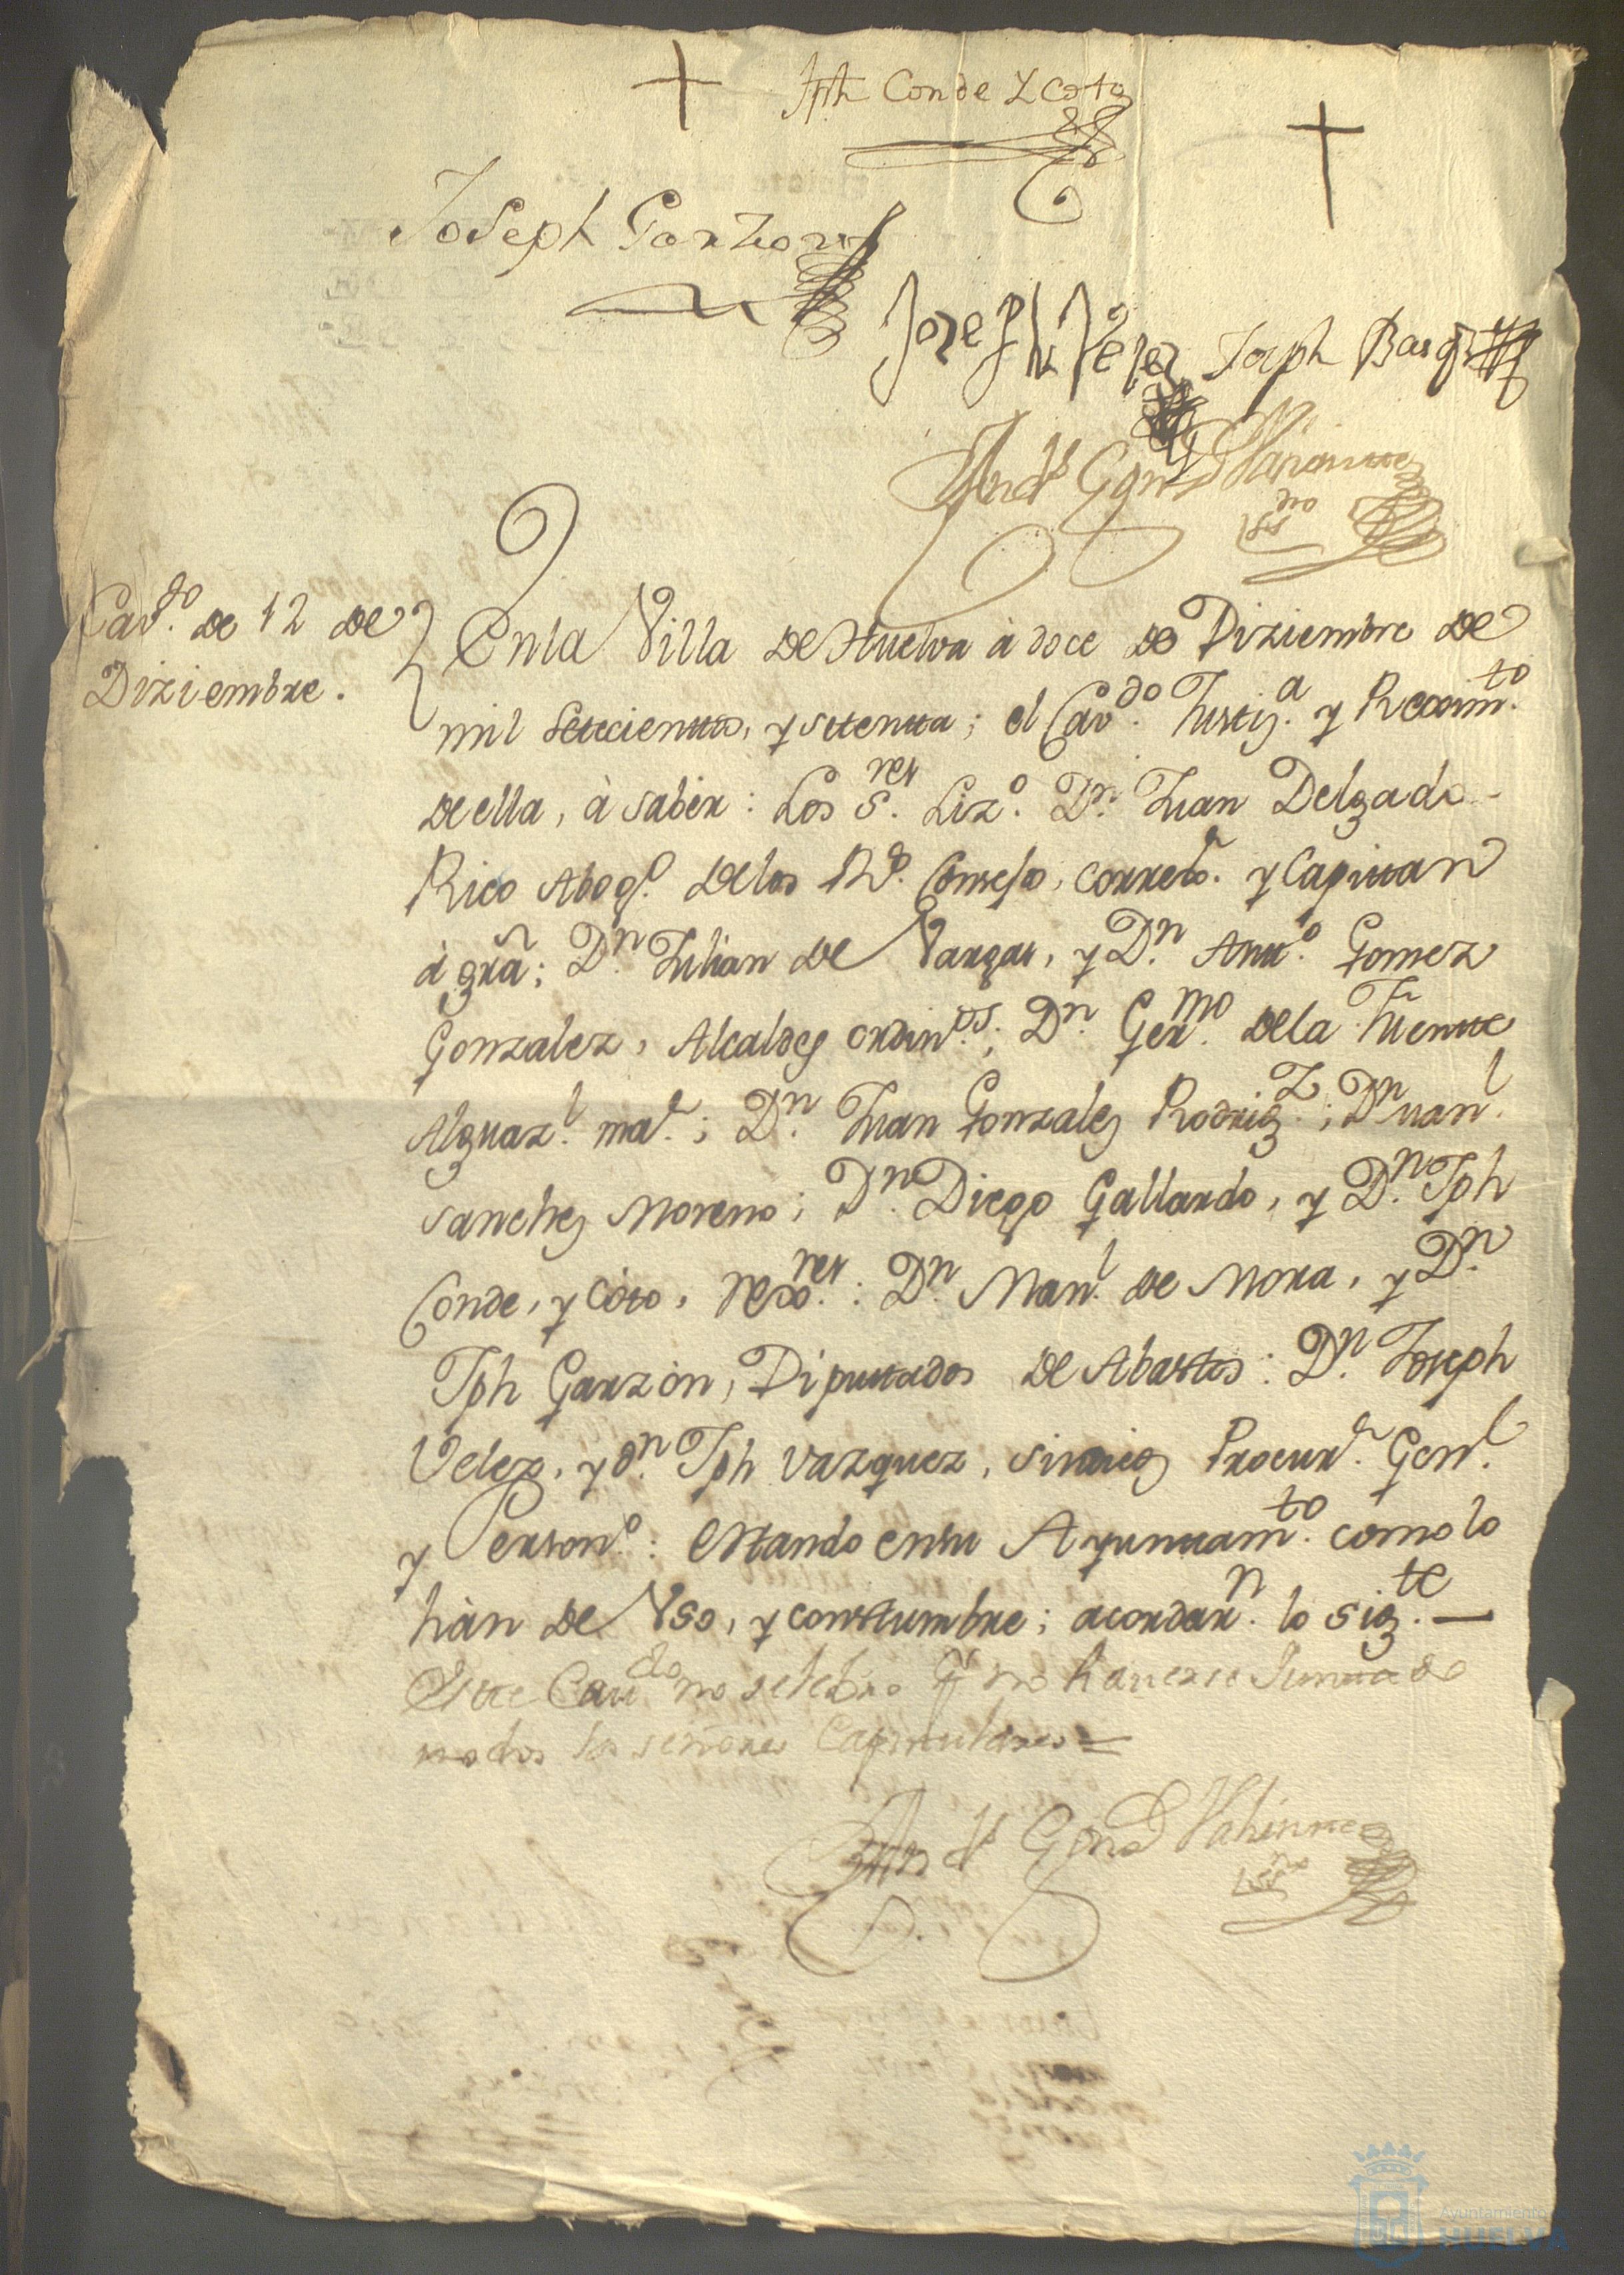 Jph Conde Y Coto
Joseph Garzon
Josef Velez Joseph Basqz
Andrs Gonz
Esno
Cavdo. de 12 de
Diziembre.
En la Villa de Huelva à doce de Diziembre de
mil Setecientos, y setenta; el Cavdo. Justiza. y Reximto.
de ella, à saber: Los Sres. Lizo. Dn. Juan Delgado
Rico Abogo. de los Rs. Consejos, Corretor. y Capitan
à gra; Dn. Julian de Vargas, y Dn. Anto. Gomez
Gonzalez, Alcaldes ordinos.; Dn. Germo. de la Fuente
Alguazl. mar.; Dn. Juan Gonzalez Rodrigz.; Dn Manl.
Sanchez Moreno; Dn. Diego Gallardo, y Dn. Jph
Conde, y Coto, rexores.: Dn. Manl. de Mora, y Dn.
Jph Garzon, Diputados de Abastos: Dn. Joseph
Velez, y Dn. Jph Vazquez, sindicos Procurr. Genl.
y Persono.: estando en su Ayuntamto. como lo
hàn de Uso, y constumbre; acordarn. lo sigte. —
Este Cavdo no se lebro pr no haverse Juntado
todos los señores Capitulares =
Andrs Gonz
Esno
Ayuntamiento de
HUELVA